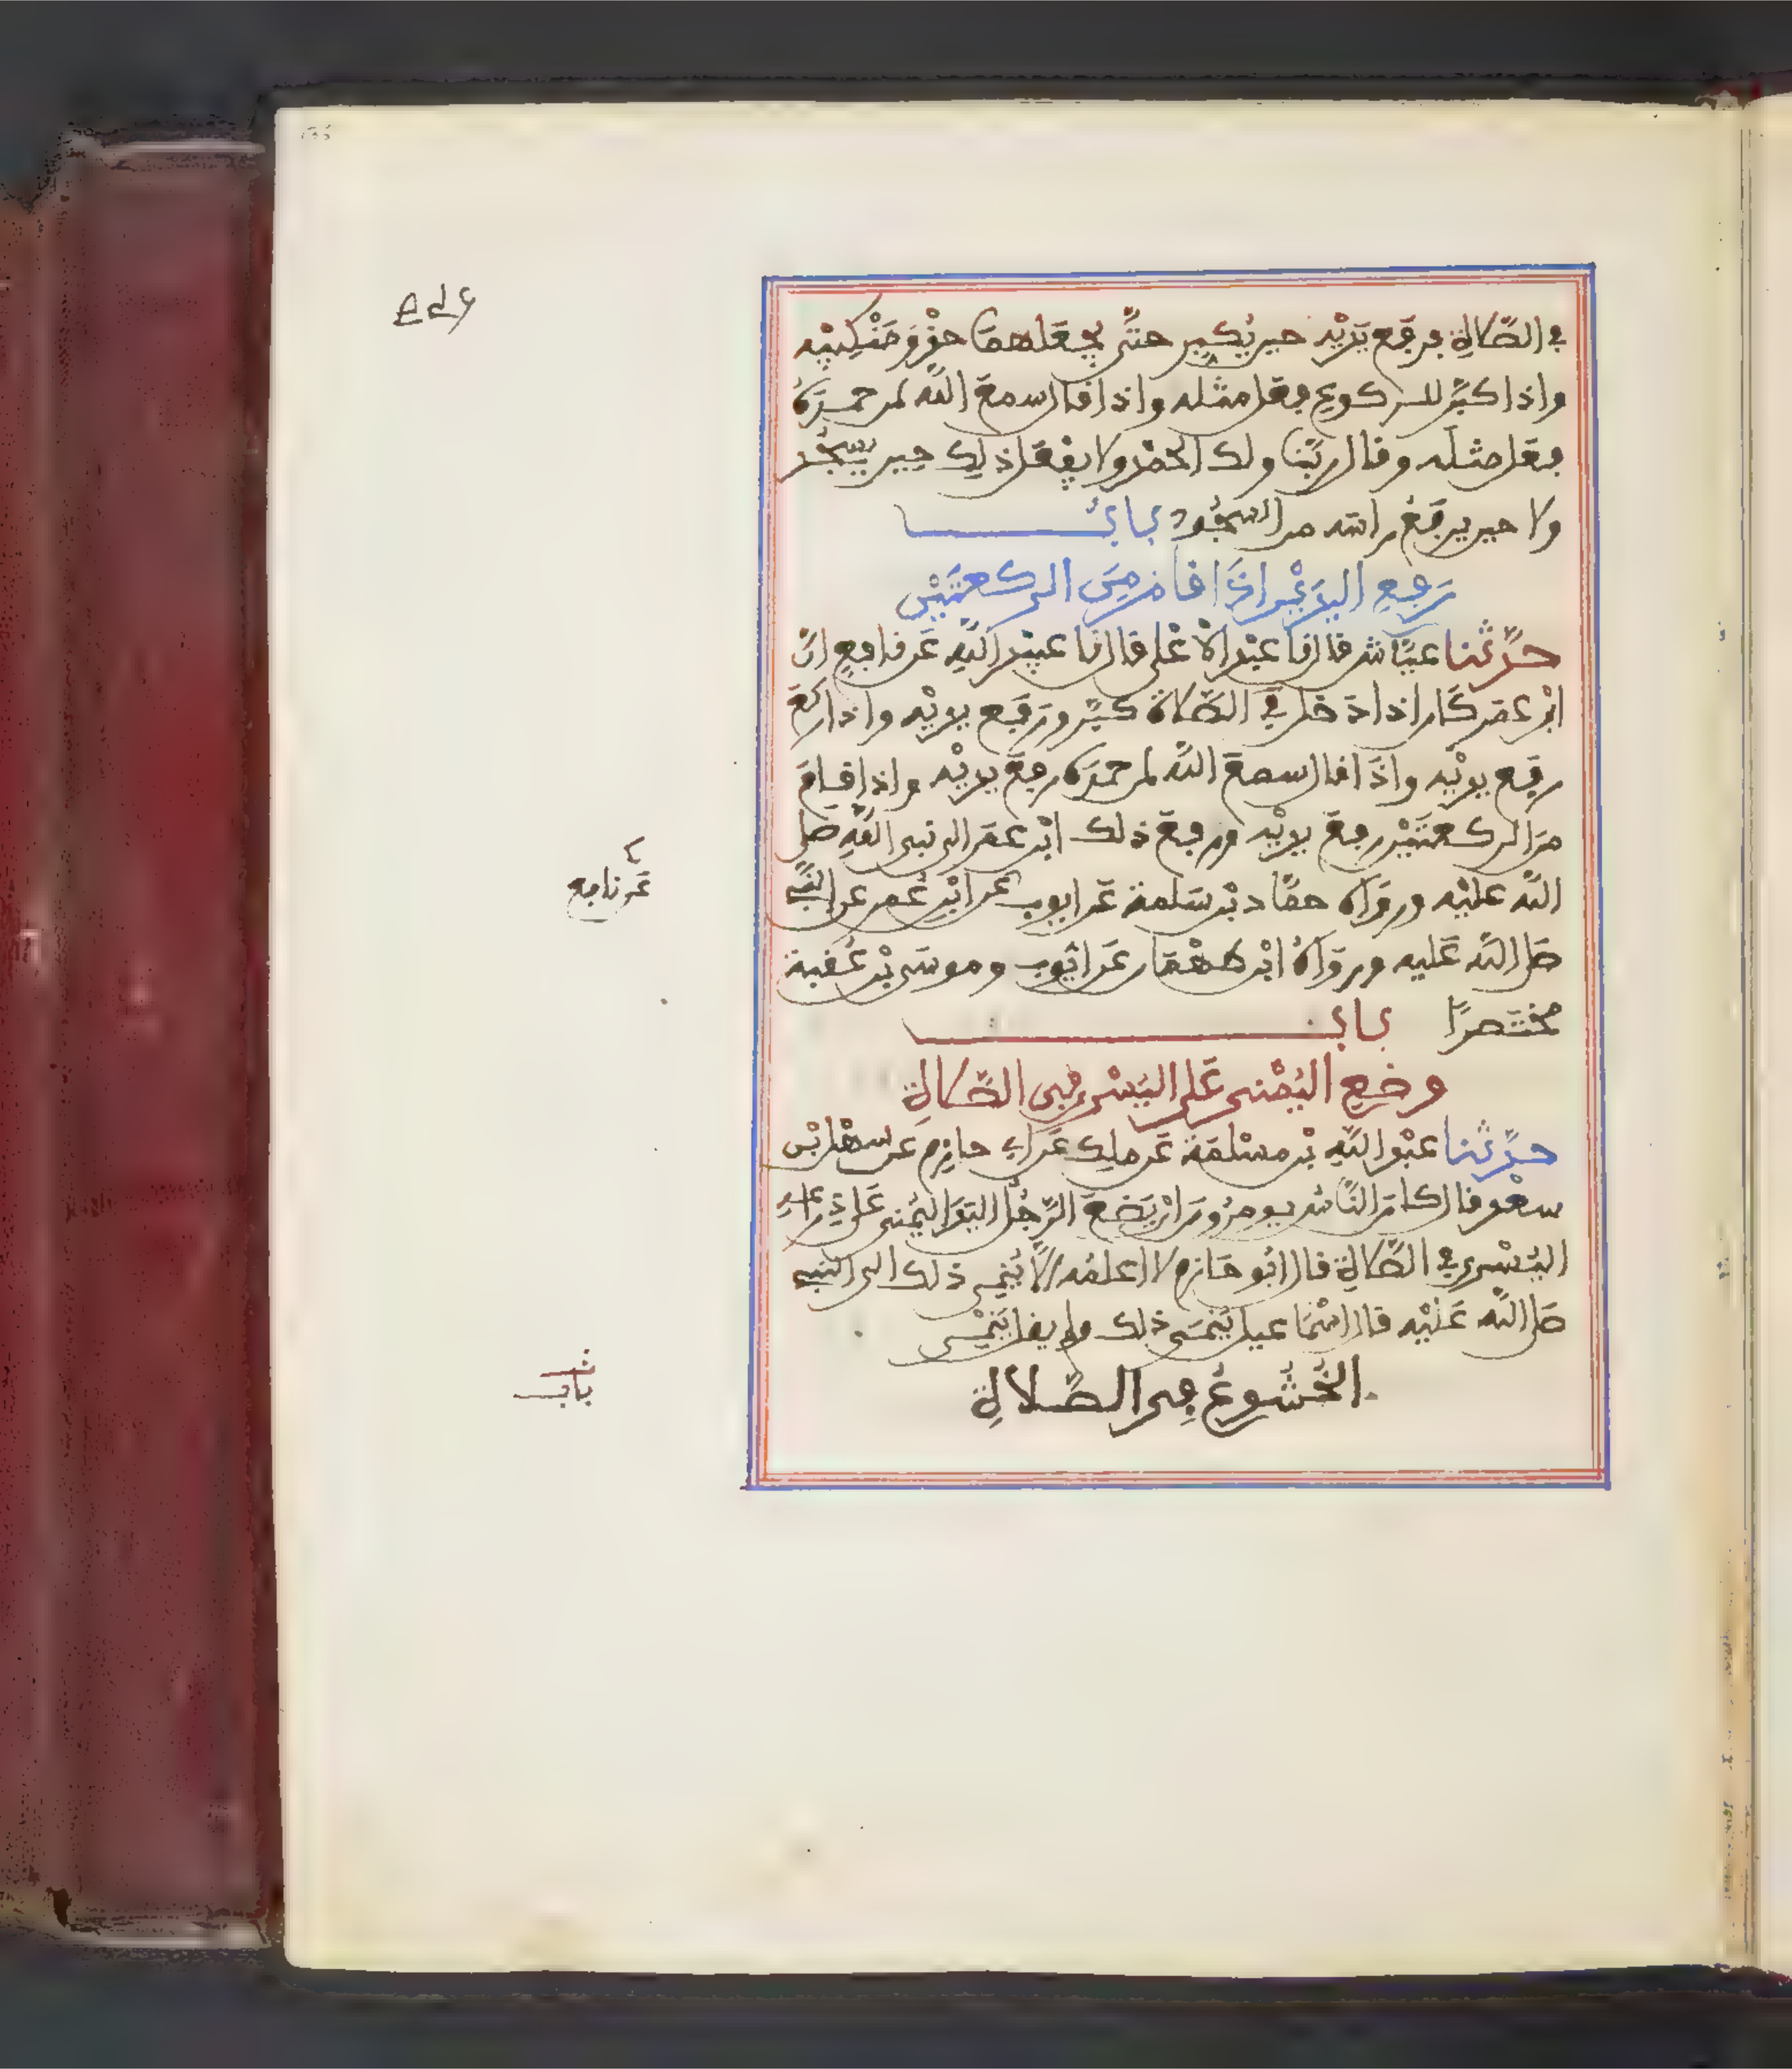 في الصّلاة فرفع يديه حين يكبر حتّى يجعلهما حذو منكبيه
واذا كبّر للركوع فعل مثله واذا قال سمع الله لمن حمده
فعل مثله وقال ربّنا ولك الحمد ولا يفعل ذلك حين يسجد
ولا حين يرفع راسه من السجود باب
رفع اليدين اذا قام من الركعتين
حدّثنا عيّاش قال نا عبد الاعلى قال نا عبيد الله عن نافع انّ
ابن عمر كان اذا دخل في الصّلاة كبّر ورفع يديه واذا ركع
رفع يديه واذا قال سمع الله لمن حمده رفع يديه واذا قام
من الركعتين رفع يديه ورفع ذلك ابن عمر الى نبي الله صلى
الله عليه ورواه حمّاد بن سلمة عن ايوب عن ابن عمر عن النبي
عن نافع
صلى الله عليه ورواه ابن طهمان عن ايّوب وموسى بن عقبة
مختصرًا باب
وضع اليمنى على اليسرى في الصّلاة
حدّثنا عبد الله بن مسلمة عن ملك عن ابي حازم عن سهل بن
سعد قال كان النّاس يومرون ان يضع الرّجل اليد اليمنى على ذراعه
اليسرى في الصّلاة قال ابو حازم لا اعلمه الّا ينمي ذلك الى النبي
صلى الله عليه قال اسماعيل ينمى ذلك ولم يقل ينمي
باب
الخشوع في الصّلاة